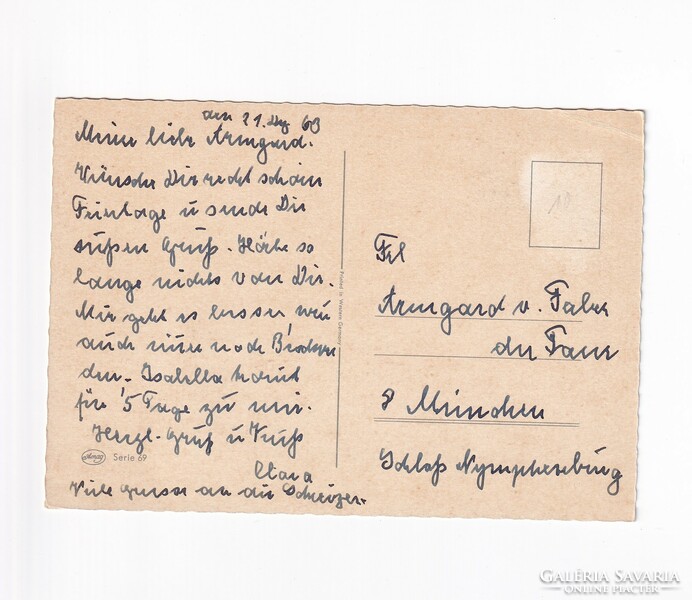 den 21. Dez 63
Meine liebe Armgard.
Wünsche Dir recht schöne
Feiertage u sende Dir
süßen Gruß. Hörte so
lange nichts von Dir.
Mir geht es besser wenn
auch immer noch
den. Isabella kommt
für 5 Tage zu mir.
Herzl. Gruß u Kuß
Clara
Viele Grüsse an die
Serie 69
Printed in Western Germany
10
Frl
Armgard v. Faber
du Faur
8 München
Schloß Nymphenburg
GALÉRIA SAVARIA
ONLINE PIACTÉR